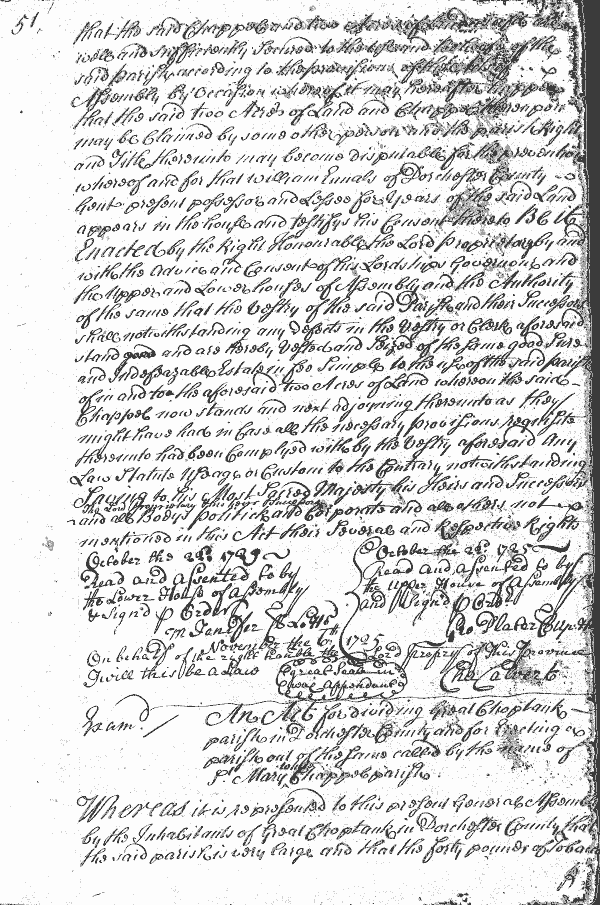 51.
that the said Chappel and two Acres of Land are
well and sufficiently secured to the use and of the
said Parish according to the provisions of the
Assembly by Occasion whereof it may hereafter happen
that the said two Acres of Land and Chappel thereupon
may be Claimed by some other person and the parish Right
and Title thereunto may become disputable for the prevention
whereof and for that William Ennals of Dorchester County
Gent present possessor and Lessee for years of the said Land
appears in the house and testifys his Consent thereto Be it
Enacted by the Right Honourable the Lord Proprietary by and
with the Advice and Consent of his Lordships Governour and
the Upper and Lower houses of Assembly and the Authority
of the same that the Vestry of the said Parish and their Successors
shall notwithstanding any defects in the Vestry or Clerk aforesaid
stand and are hereby Vested and Seized of the same good Sure
and Indefeazable Estate in fee Simple to the use of the said parish
of in and to the aforesaid two Acres of Land whereon the said
Chappel now stands and next adjoyning thereunto as they
might have had in Case all the necessary provisions requisite
thereunto had been Complyed with by the Vestry aforesaid Any
Law Statute Usage or Custom to the Contrary notwithstanding
Saving to his Most Sacred Majesty his Heirs and Successors
the Lord Proprietary his heirs
and all Bodys Politick and Corporate and all others not
mentioned in this Act their Several and Respective Rights
October the 22d. 1725
Read and assented to by
the Lower House of Assembly
& Sign'd p Order
M Jenifer Cl Lo
October the 22d. 1725
Read and assented to by
the Upper House of Assembly
and Sign'd p Order
November the 6th 1725
On behalf of the right honble the Lord Propry of this Province
I will this be a Law
Great Seal in
Wax Appendant
Cha Calvert
Exam'd
An Act for dividing Great Choptank
parish in Dorchester County and for Erecting a
parish out of the same called by the name of
St Mary Chappel parish
Whereas it is represented to this present General Assembly
by the Inhabitants of Great Choptank in Dorchester County that
the said parish is very large and that the forty pounds of Tobacco